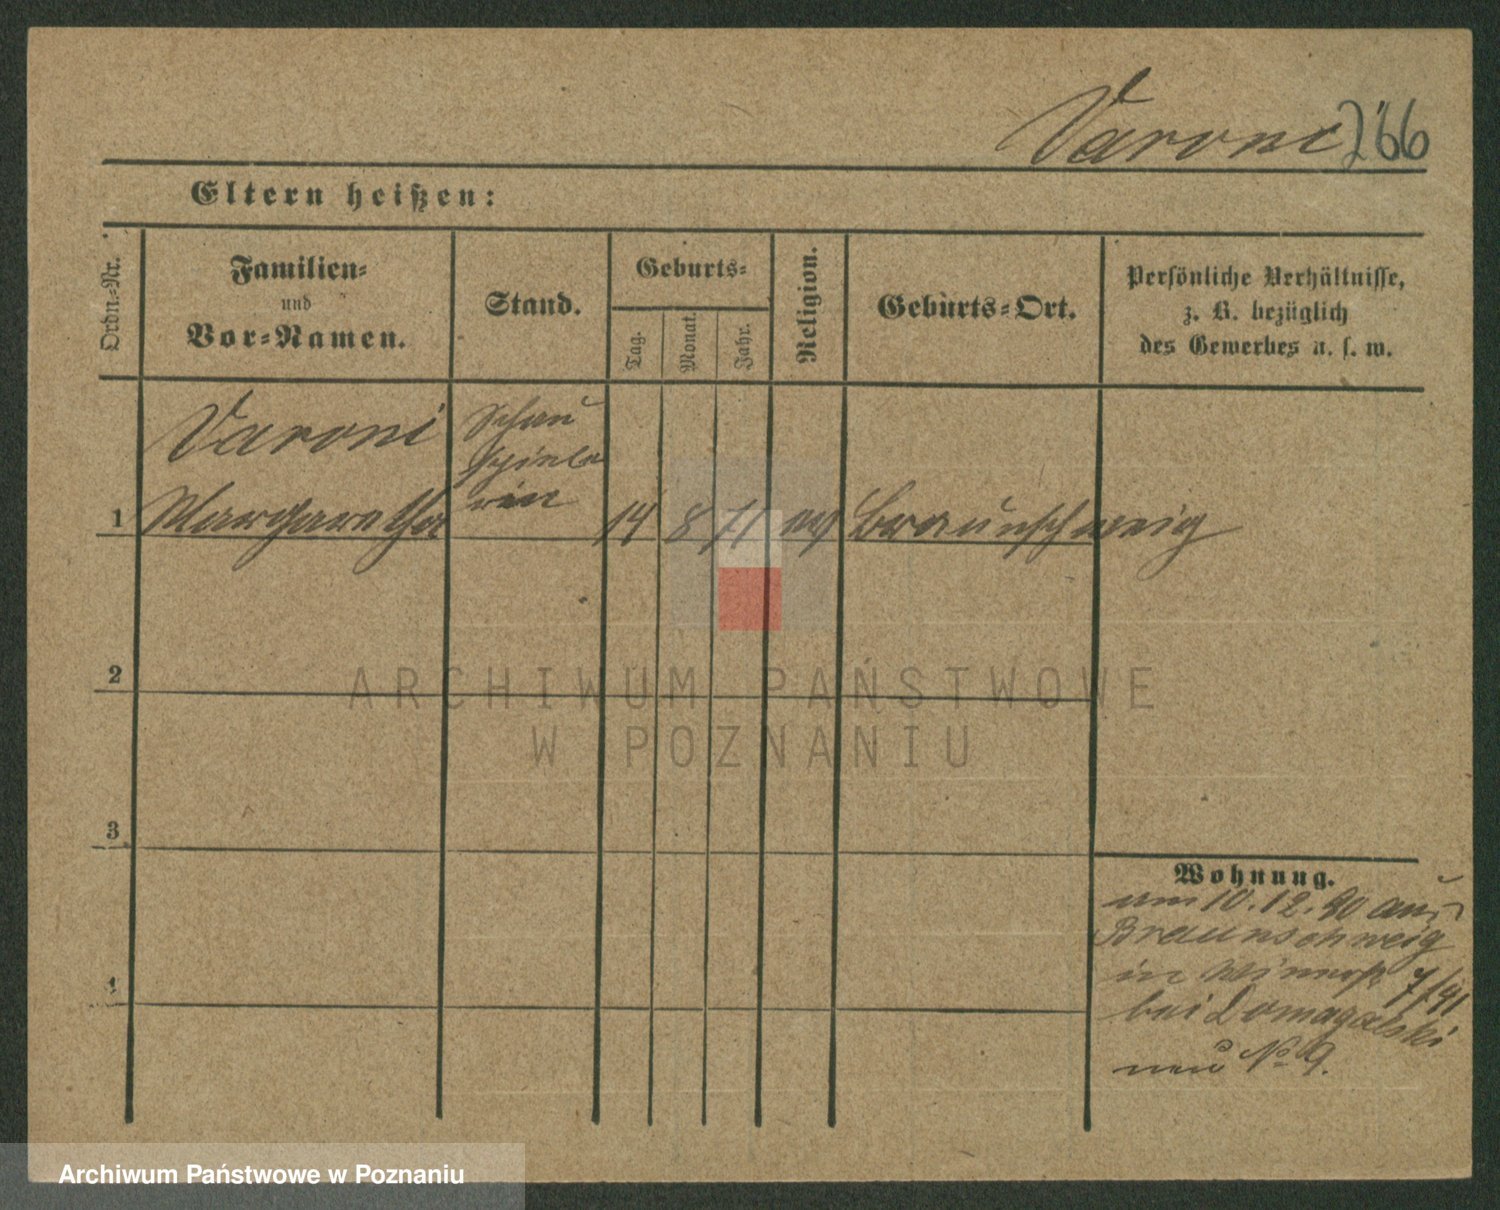 Varoni 266
Eltern heißen:
Ordn.-Nr.
Familien-
und
Vor-Namen.
Stand.
Geburts-
Tag.
Monat.
Jahr.
Religion.
Geburts-Ort.
Persönliche Verhältnisse,
z. B. bezüglich
des Gewerbes u. s. w.
Varoni
Schau
spiele
rin
1 Margaretha 14 8 71 Braunschweig
2
3
4
Wohnung.
am 10.12.90 aus
Braunschweig
in 7/91
bei Domagalski
neu No 9.
ARCHIWUM PAŃSTWOWE
W POZNANIU
Archiwum Państwowe w Poznaniu